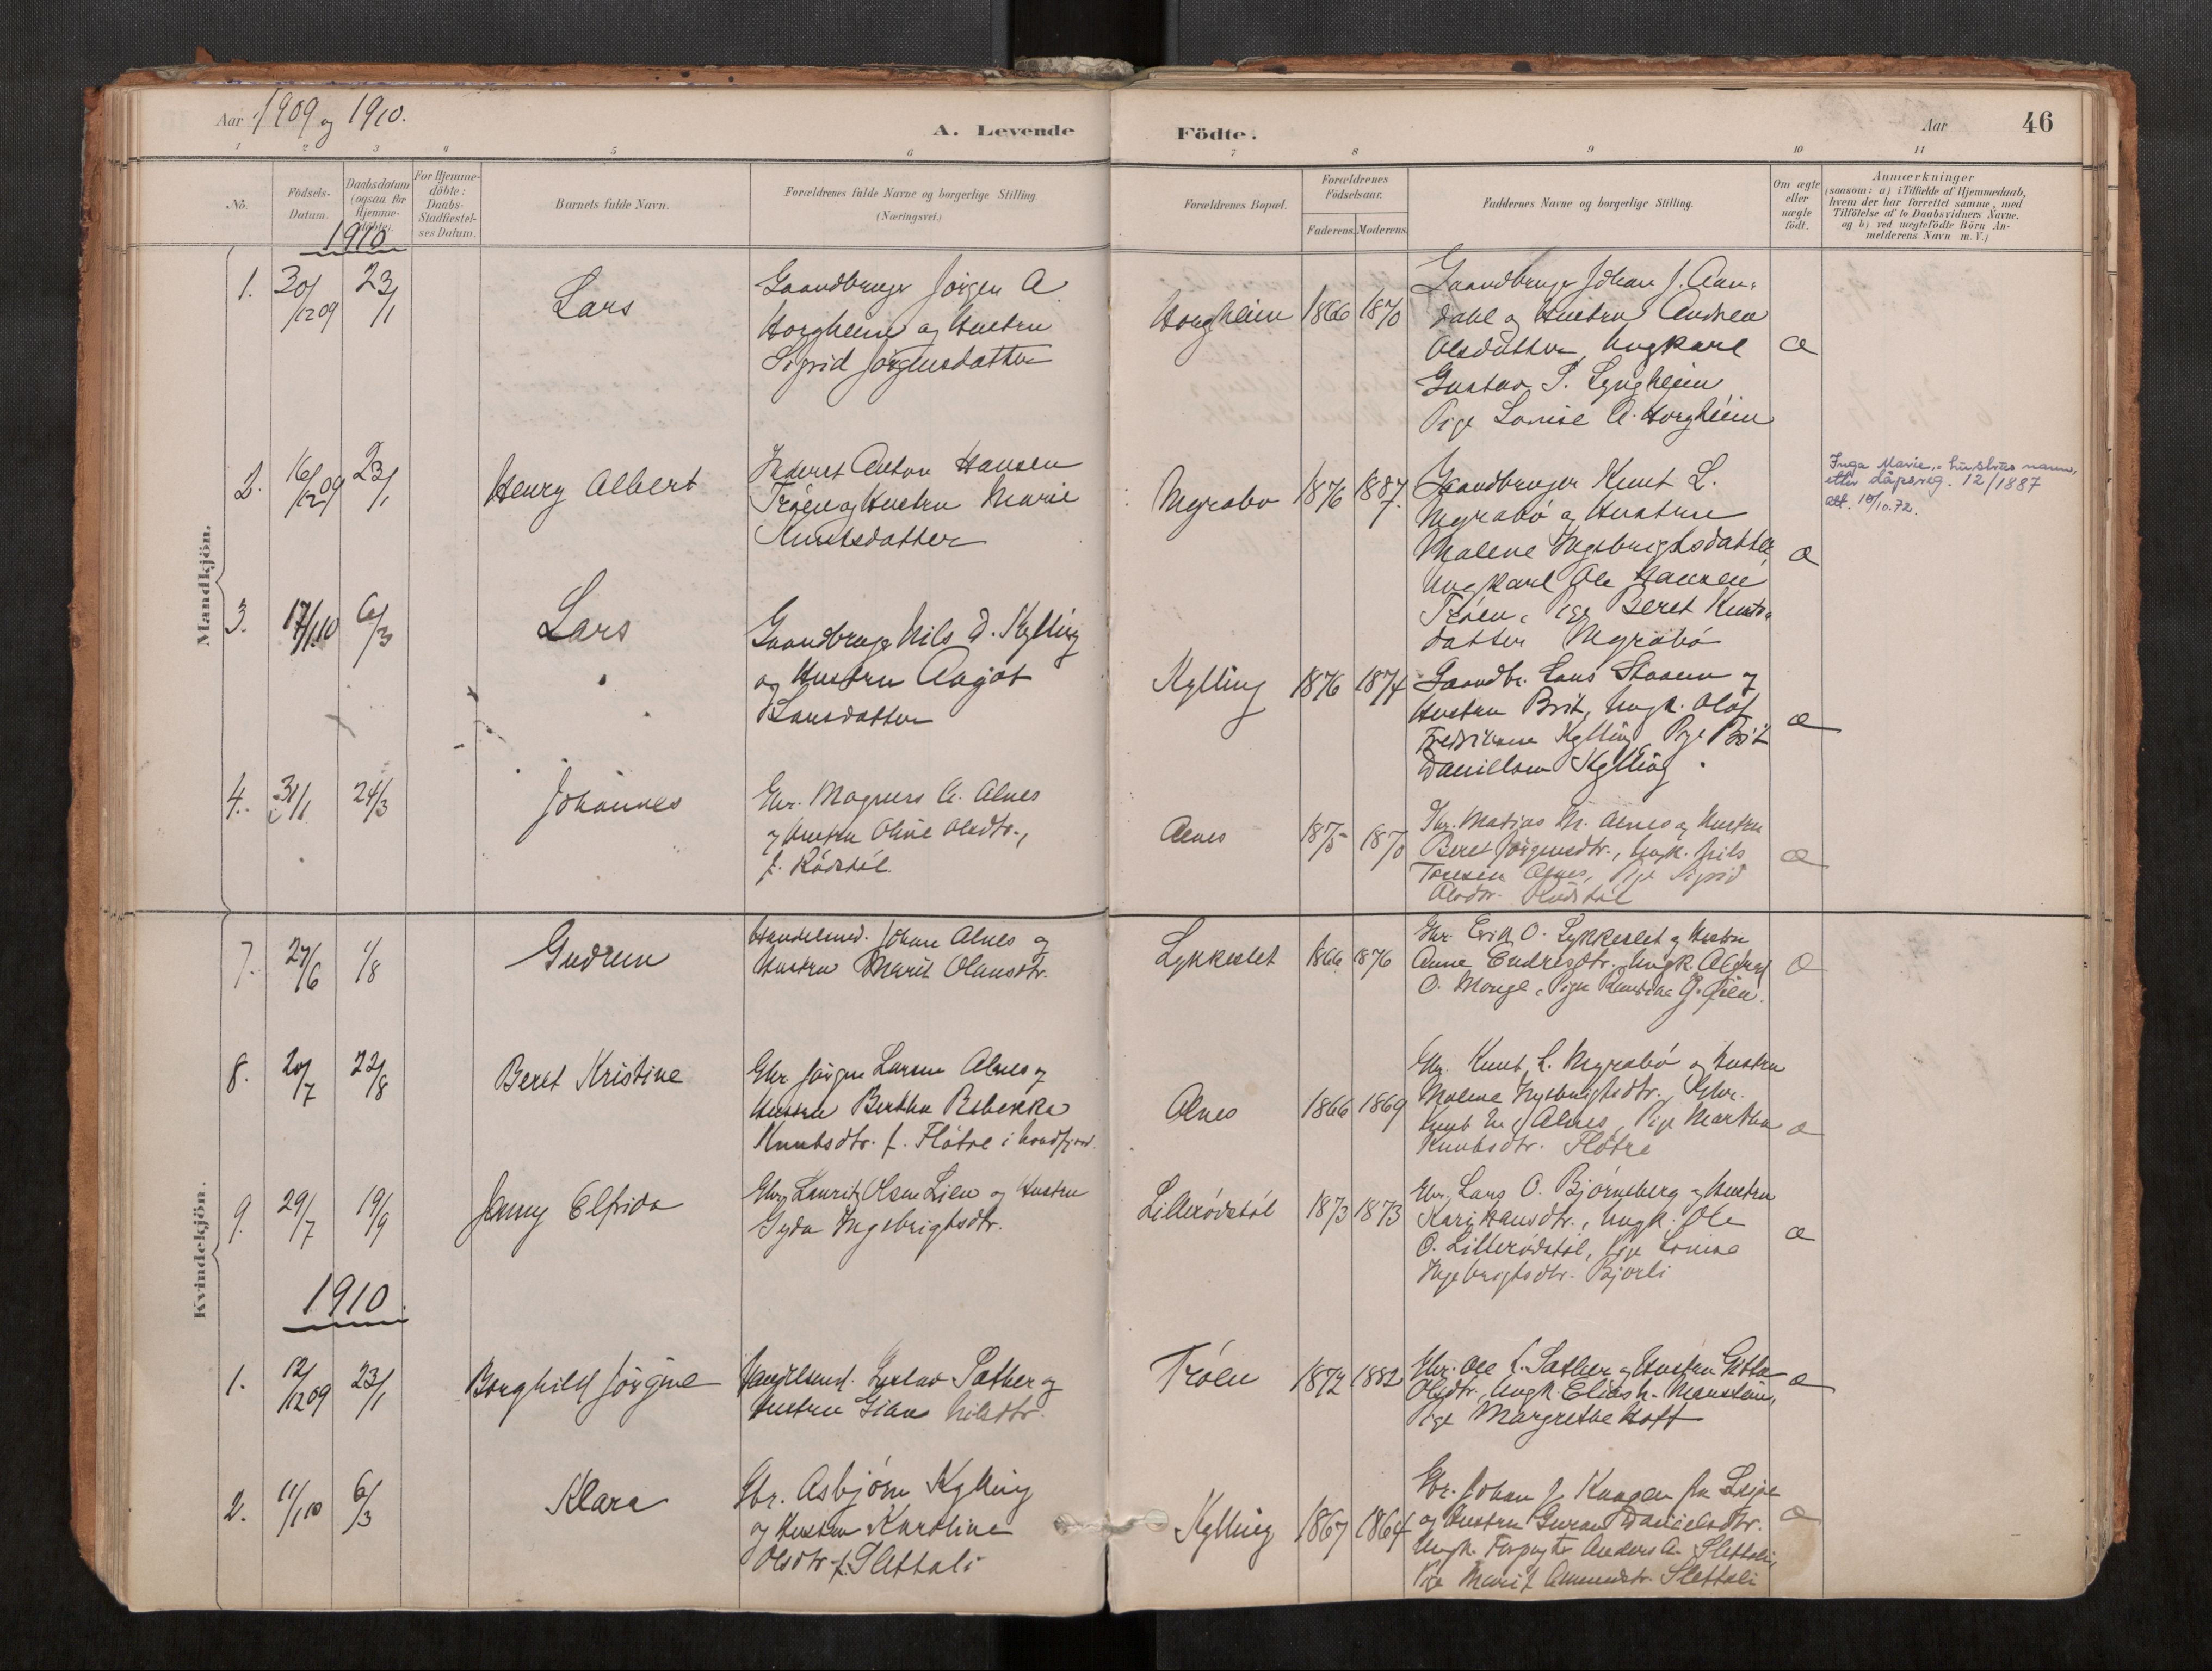 Aar 1909 og 1910.
A. Levende
Födte.
Aar
46
1 2 3 4 5 6 7 8 9 10 11
No.
Födsels-
Datum.
Daabsdatum
(ogsaa for
Hjemme-
döbte).
For Hjemme-
döbte:
Daabs-
Stadfæstel-
ses Datum.
Barnets fulde Navn.
Forældrenes fulde Navne og borgerlige Stilling.
(Næringsvei.)
Forældrenes Bopæl.
Forældrenes
Födselsaar.
Faderens.
Moderens.
Faddernes Navne og borgerlige Stilling.
Om ægte
eller
uægte
födt.
Anmærkninger
(saasom: a) i Tilfælde af Hjemmedaab,
hvem der har forrettet samme, med
Tilföielse af to Daabsvidners Navne.
og b) ved uægtefödte Börn An-
melderens Navn m. V.)
1910
Mandkjön.
1. 30/12 09 23/1
Lars
Gaardbruger Jörgen A
Horgheim og Hustru
Sigrid Jörgensdatter
Horgheim 1866 1870
Gaardbruger Johan J. Aan-
dahl og Hustru Andrea
Olsdatter, Ungkarl
Gustav S. Lyngheim
Pige Louise A. Horgheim
æ
2. 16/12 09 23/1
Henry Albert
Inderst Anton Hansen
Tröen og Hustru Marie
Knutsdatter
Myrabø 1876 1887
Gaardbruger Knut L.
Myrabö og Hustru
Malene Ingebrigtsdatter
Ungkarl Ole Hansen
Tröen, Pige Beret Knuts-
datter Myrabö
æ
Inga Marie, hustrus navn,
etter dåpsreg. 12/1887
att. 10/10.72.
3. 17/1 10 6/3
Lars
Gaardbruger Nils D. Kylling
og Hustru Angot
Larsdatter
Kylling 1876 1874
Gaardbr. Lars Staven og
Hustru Brit, Ungk. Olaf
Fredriksen Kylling Pige Brit
Danielsen Kylling
æ
4. 31/1 24/3
Johannes
Gbr. Magnus A. Alnes
og Hustru Oline Olsdtr.,
f. Rödstöl.
Alnes 1875 1870
Gbr. Matias M. Alnes og Hustru
Beret Jörgensdtr., Ungk. Nils
Tomsen Alnes, Pige Sigrid
Olsdtr. Rödstöl
æ
Kvindekjön.
7. 27/6 1/8
Gudrun
Handelsmd. Johan Alnes og
Hustru Marit Olausdtr.
Lykkeslet 1866 1876
Gbr. Erik O. Lykkeslet og Hustru
Anne Endresdtr., Ungk. Alfred
O. Monge, Pige
æ
8. 20/7 22/8
Beret Kristine
Gbr Jörgen Larsen Alnes og
Hustru Bertha Rebekka
Knutsdtr. f. Flötre i Nordfjord.
Alnes 1866 1869
Gbr. Knut L. Myrabö og Hustru
Malene Ingebrigtsdtr., Gbr.
Knut M. Alnes, Pige Martha
Knutsdtr. Flötre
æ
9. 29/7 19/9
Jenny Elfrida
Gbr Lauritz Olsen Lien og Hustru
Gyda Ingebrigtsdtr.
Lillerödstöl 1873 1873
Gbr. Lars O. Björneberg og Hustru
Kari Hansdtr., Ungk. Ole
O. Lillerödstöl, Pige Louise
Ingebrigtsdtr. Bjorli
æ
1910.
1. 12/12 09 23/1
Borghild Jörgine
Handelsmd. Gustav Sæther og
Hustru Gian Nilsdtr.
Tröen 1872 1882
Gbr. Ole L. Sæther og Hustru Gitta
Olsdtr., Ungk. Elias N.
Pige Margrethe Hoff
æ
2. 11/1 10 6/3
Klara
Gbr. Asbjörn Kylling
og Hustru Karoline
Olsdtr. f. Slettali
Kylling 1867 1864
Gbr. Johan J. Knagen fra Lesje
og Hustru Guran Danielsdtr.
Ungk. Anders A. Slettali,
Pige Marit Slettali
æ